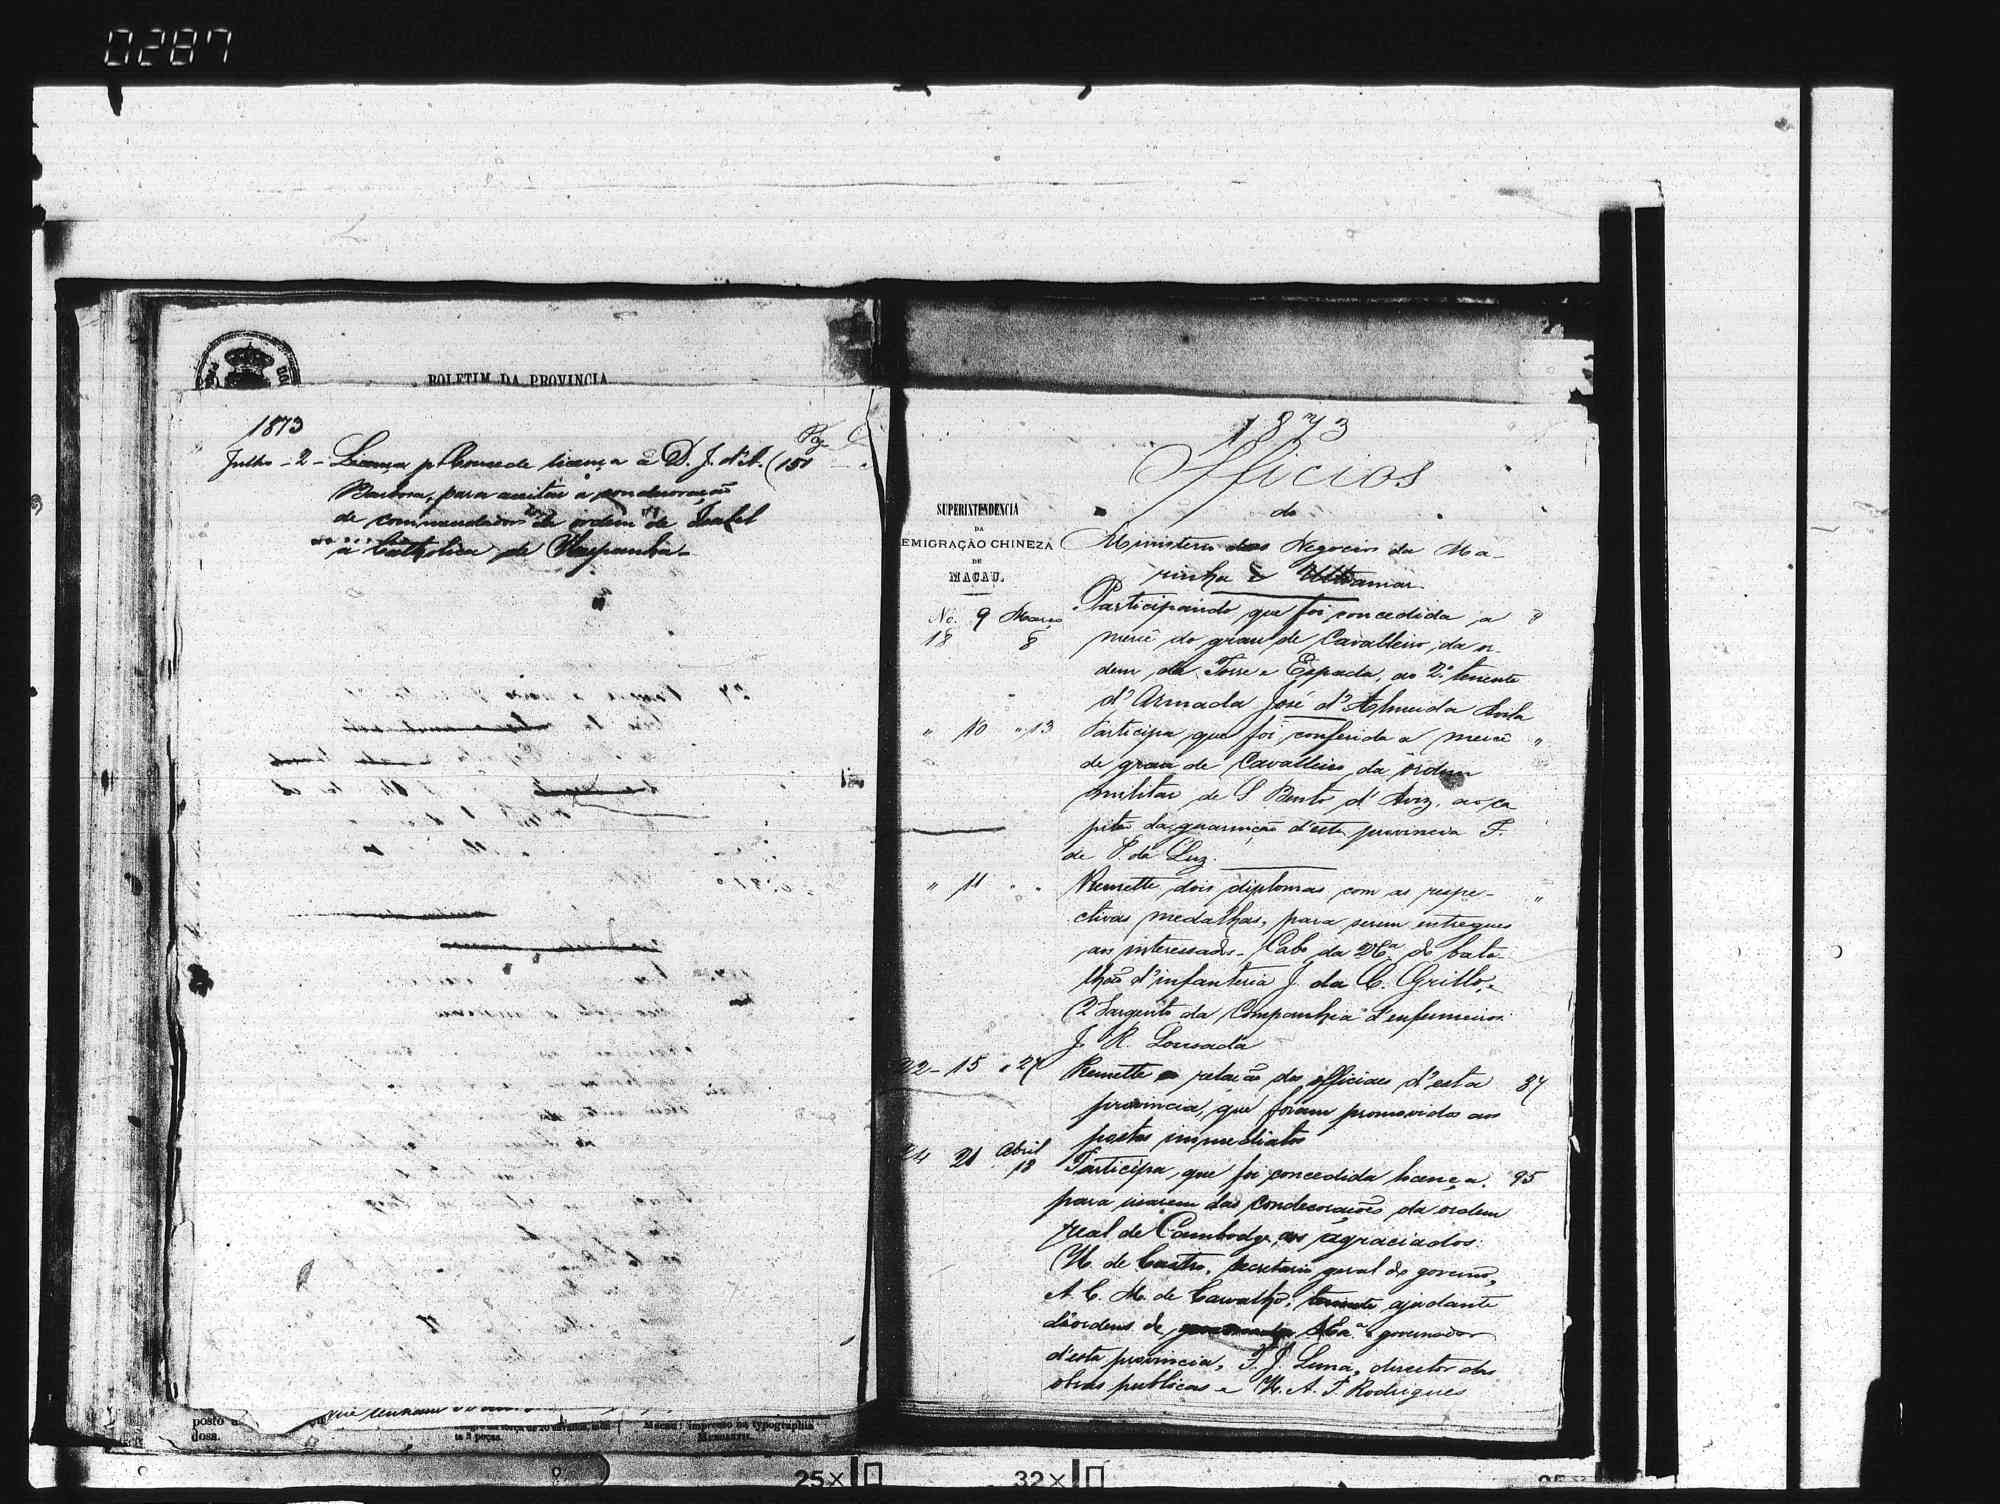 0287
BOLETIM DA PROVINCIA
1873
Pag
Julho - 2 - Licença p. Concede licença a D. J. d'A. (151
Barbosa, para aceitar a condecoração
de commendador da ordem de Isabel
a Catholica de Hespanha
posto a
dosa.
que tenham
te 2 peças.
Macau: impresso na typographia
Mercantil.
1873
Officios
do
Ministerio dos Negocios da Ma-
rinha e Ultramar
SUPERINTENDENCIA
DA
EMIGRAÇÃO CHINEZA
DE
MACAU.
No. 9 Março Participando que foi concedida a
18 8 mercê do grau de Cavalleiro da or-
dem da Torre e Espada, ao 2º tenente
d'Armada José d'Almeida Avila
" 10 " 13 Participa que foi conferida a mercê "
de grau de Cavalleiro da ordem
militar de S. Bento d'Aviz, ao ca
pitão da guarnição d'esta provincia F.
de P. da Luz.
" 11 " " Remette dois diplomas com as respe- "
ctivas medalhas, para serem entregues
aos interessados - Cabo da do bata
lhão d'infanteria J. da C. Grillo, e
2 Sargento da Companhia d'enfermeiros
J. R. Lousada
22 - 15 " 27 Remette a relação dos officiaes d'esta 87
provincia, que foram promovidos aos
postos immediatos
24 21 Abril 18 Participa que foi concedida licença 95
para usarem das condecorações da ordem
real de Cambodge, os agraciados:
H. de Castro, secretario geral do governo,
A. C. M. de Carvalho, tenente ajudante
d'ordens de S. Exª o governador
d'esta provincia, F. J. Luna, director das
obras publicas e H. A. F. Rodrigues
25× 32×